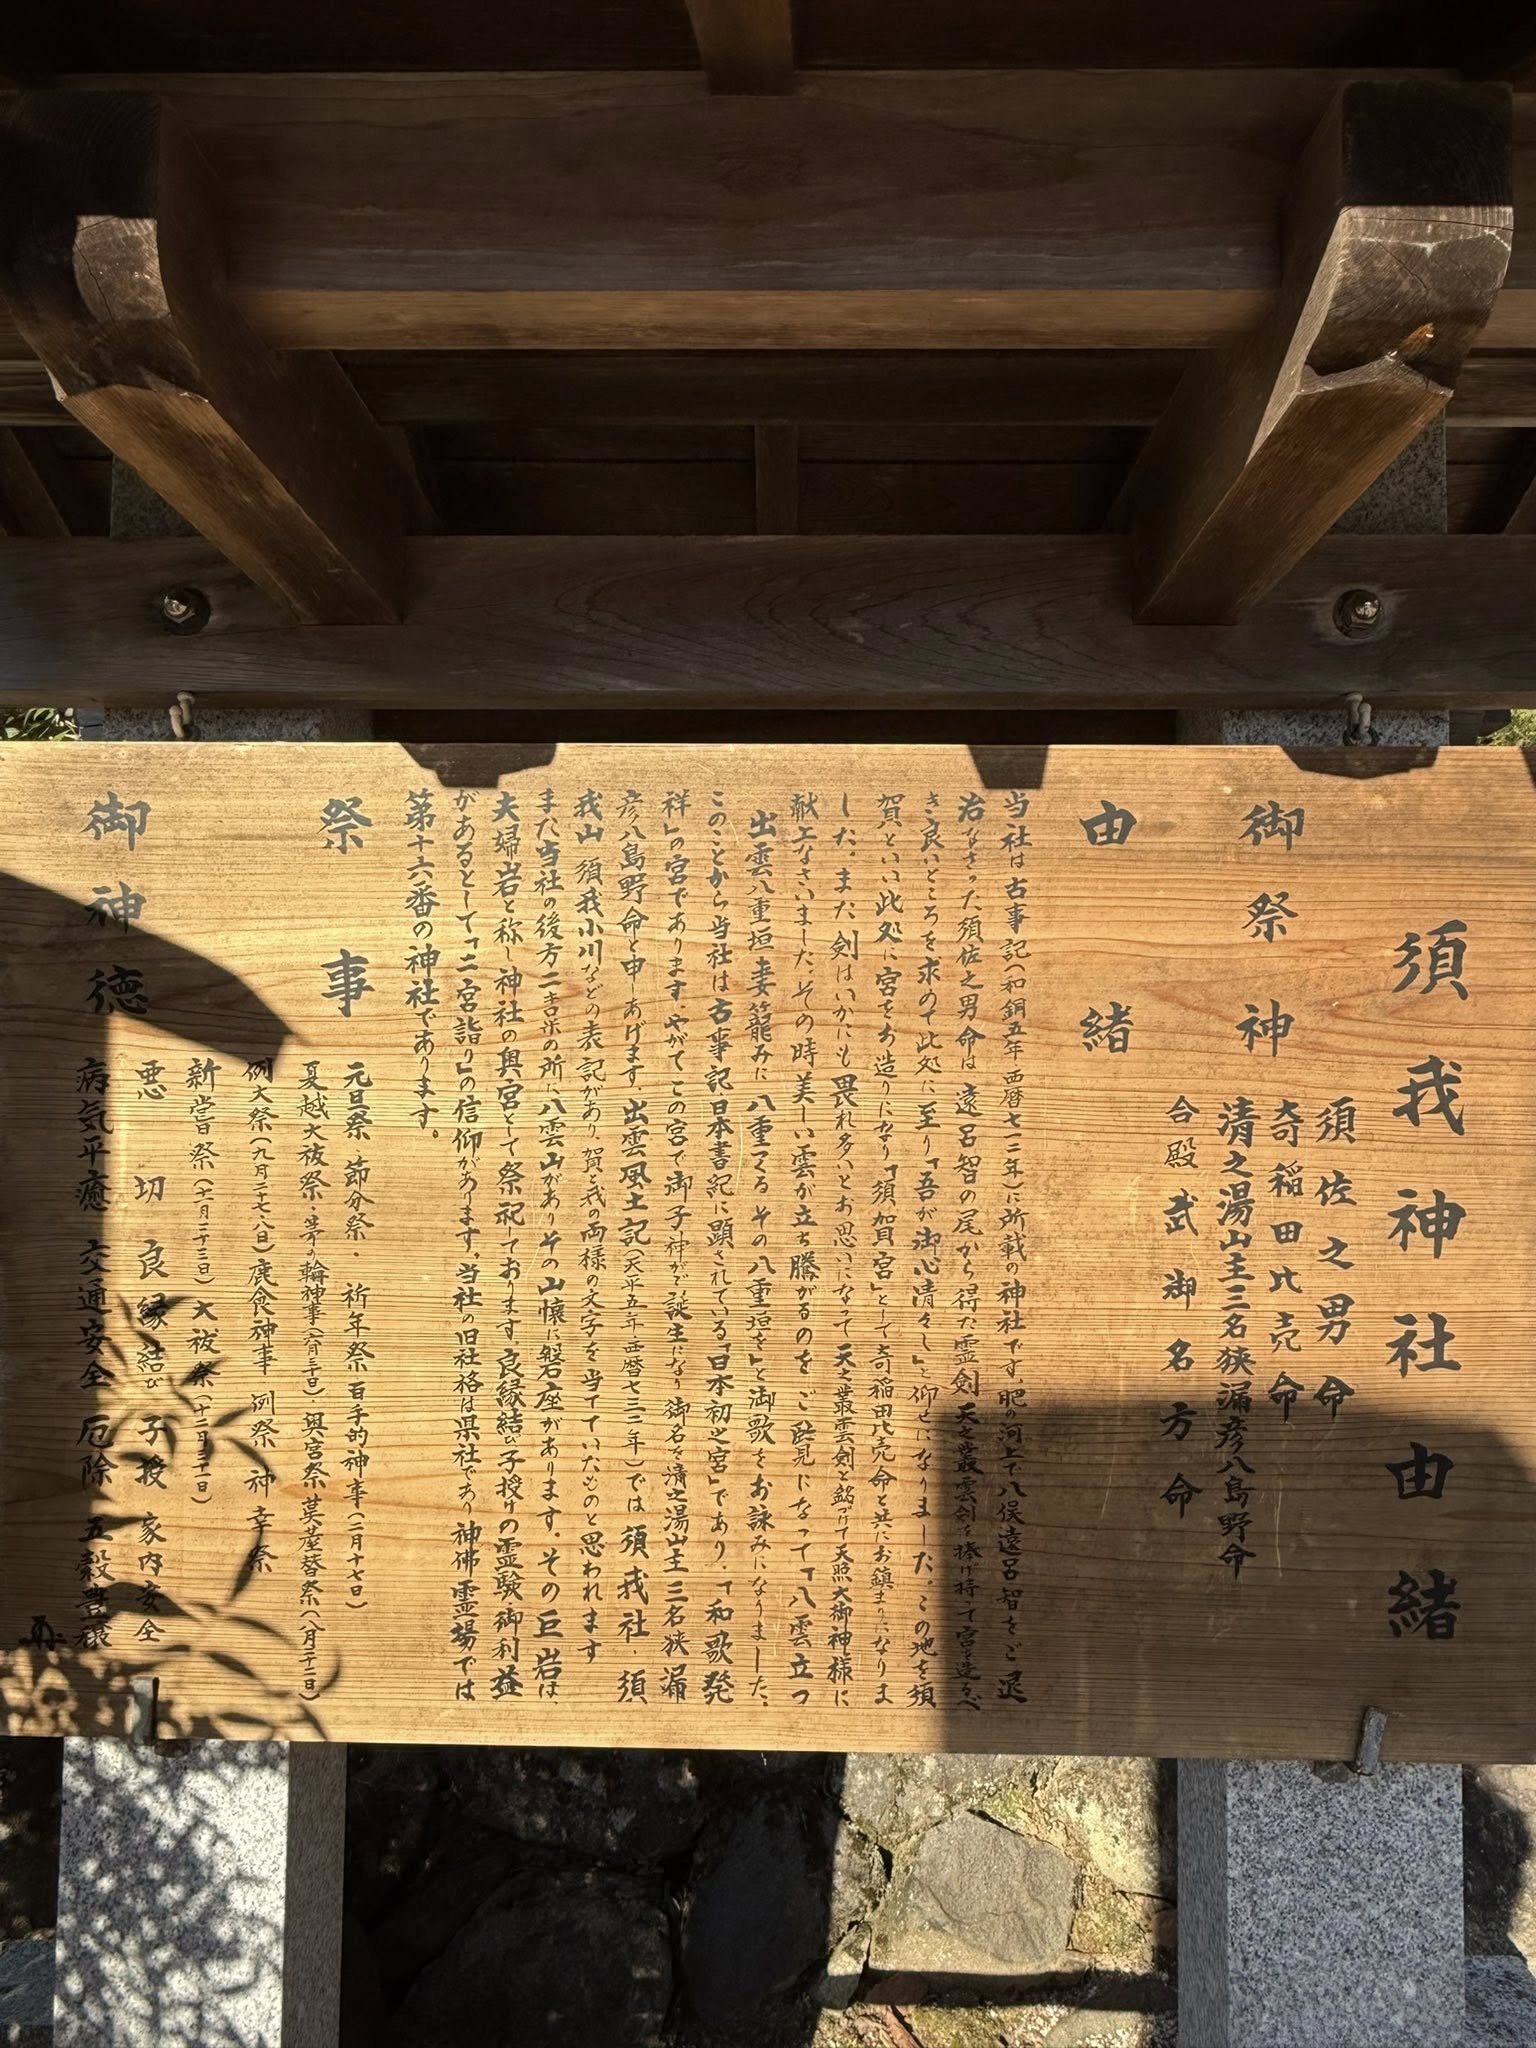 須我神社由緒
御祭神
須佐之男命
奇稲田比売命
清之湯山主三名狭漏彦八島野命
合殿 武御名方命
由緒
当社は古事記(和銅五年 西暦七一二年)に所載の神社です。肥の河上で八俣遠呂智をご退
治なさった須佐之男命は遠呂智の尾から得た霊剣 天之叢雲剣を捧げ持って宮を造るべ
き良いところを求めて此処に至り「吾が御心清々し」と仰せになりました。この地を須
賀といい此処に宮をお造りになり「須賀宮」として奇稲田比売命と共にお鎮まりになりま
した。また剣はいかにも畏れ多いとお思いになって天之叢雲剣と銘づけて天照大御神様に
献上なさいました。その時美しい雲が立ち騰がるのをご覧になって「八雲立つ
出雲八重垣 妻籠みに 八重つくる その八重垣を」と御歌をお詠みになりました。
このことから当社は古事記・日本書紀に顕されている「日本初之宮」であり、「和歌発
祥」の宮であります。やがてこの宮で御子神がご誕生になり御名を清之湯山主三名狭漏
彦八島野命と申しあげます。出雲風土記(天平五年・西暦七三二年)では須我社・須
我山 須我小川などの表記があり、賀と我の両様の文字を当てていたものと思われます
また当社の後方二キロ米の所に八雲山がありその山懐に磐座があります。その巨岩は、
夫婦岩と称し神社の奥宮として祭祀しております。良縁結び子授けの霊験・御利益
があるとして「二宮詣り」の信仰があります。当社の旧社格は県社であり神佛霊場では
第十六番の神社であります。
祭事
元旦祭・節分祭・祈年祭 百手的神事(二月十七日)
夏越大祓祭・茅の輪神事(六月三十日)・奥宮祭 茣蓙替祭(八月二十二日)
例大祭(九月二十七・八日)鹿食神事 例祭 神幸祭
新嘗祭(十一月二十三日)大祓祭(十二月三十一日)
御神徳
悪切 良縁結び 子授 家内安全
病気平癒 交通安全 厄除 五穀豊穣